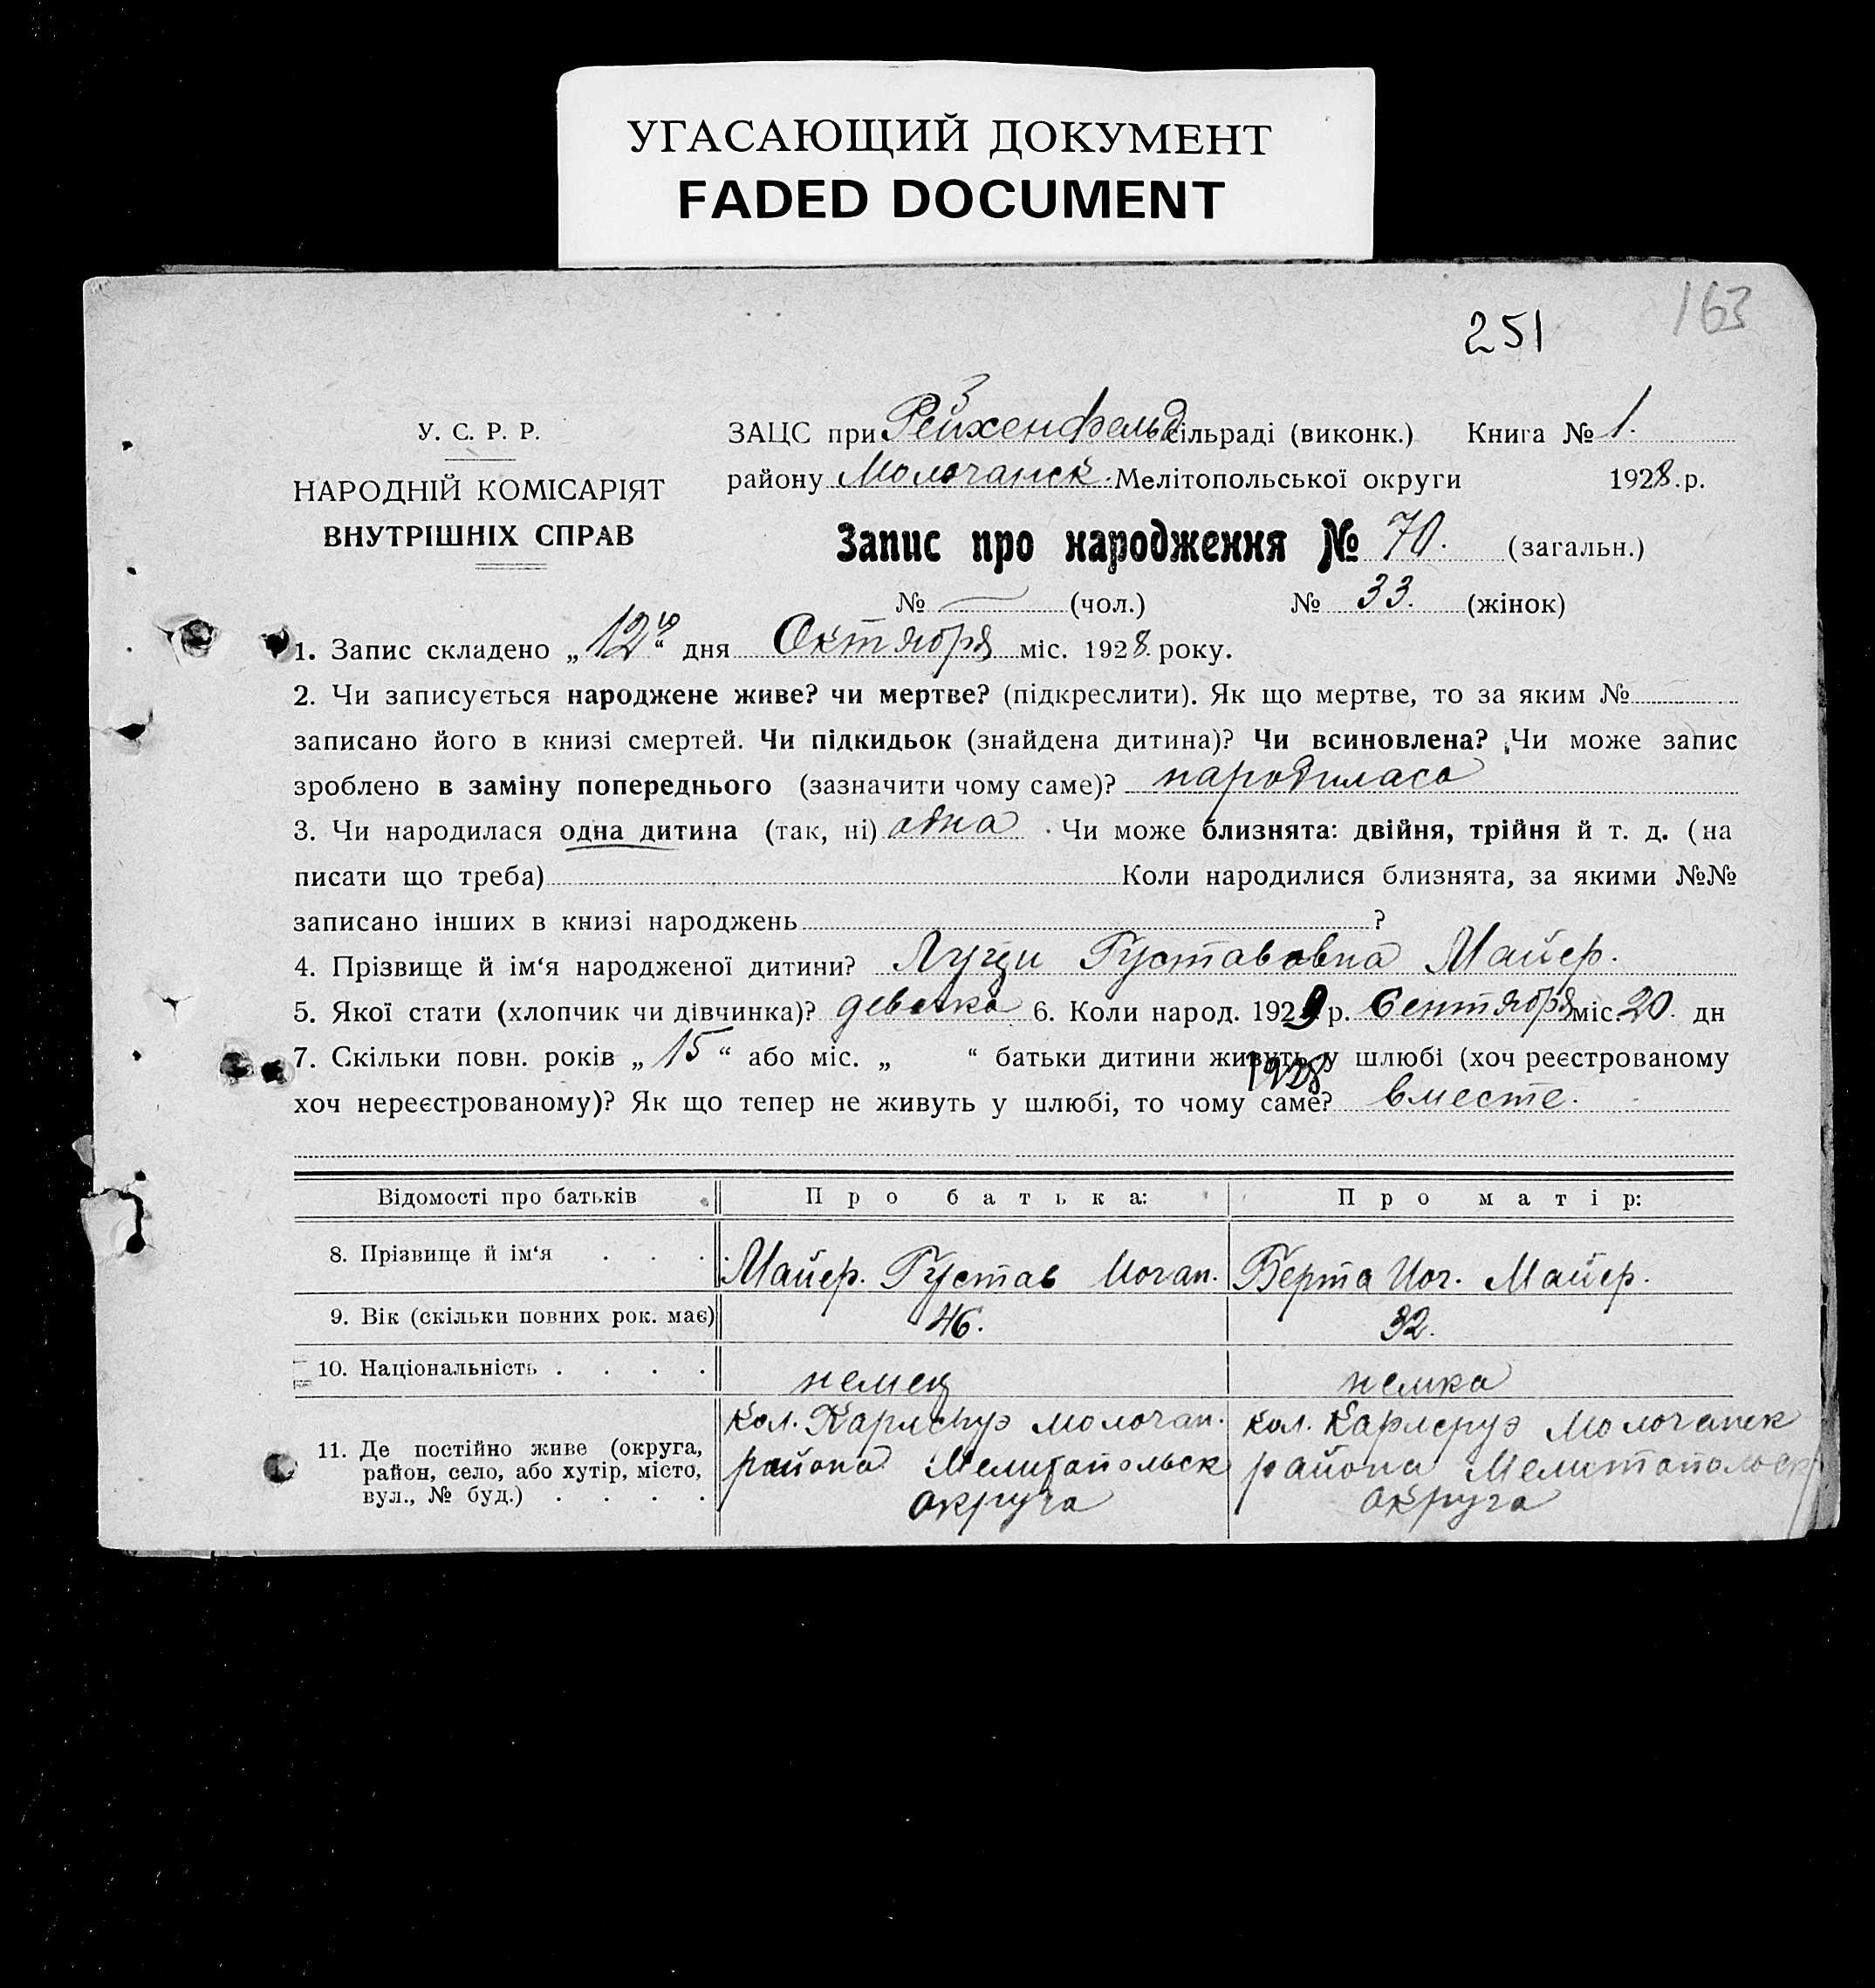 УГАСАЮЩИЙ ДОКУМЕНТ
FADED DOCUMENT
163
251
У. С. Р. Р.
НАРОДНІЙ КОМІСАРІЯТ
ВНУТРІШНІХ СПРАВ
ЗАЦС при Рейхенфельд сільраді (виконк.) Книга № 1.
району Молочанск. Мелітопольської округи 1928 р.
Запис про народження № 70. (загальн.)
№ — (чол.) № 33. (жінок)
1. Запис складено „12го“ дня Октября міс. 1928 року.
2. Чи записується народжене живе? чи мертве? (підкреслити). Як що мертве, то за яким №
записано його в книзі смертей. Чи підкидьок (знайдена дитина)? Чи всиновлена? Чи може запис
зроблено в заміну попереднього (зазначити чому саме)? народилась
3. Чи народилася одна дитина (так, ні) одна . Чи може близнята: двійня, трійня й т. д. (на
писати що треба) Коли народилися близнята, за якими №№
записано інших в книзі народжень ?
4. Прізвище й ім‘я народженої дитини? Луци Густавовна Майер.
5. Якої стати (хлопчик чи дівчинка)? девочка 6. Коли народ. 1929 р. Сентября міс. 20. дн
7. Скільки повн. років „ 15 “ або міс. „ “ батьки дитини живуть у шлюбі (хоч реєстрованому
1928
хоч нереєстрованому)? Як що тепер не живуть у шлюбі, то чому саме? вместе.
Відомості про батьків Про батька: Про матір:
8. Прізвище й ім‘я . . . Майер. Густав Иоган. Берта Иог. Майер.
9. Вік (скільки повних рок. має) 46. 32.
10. Національність . . . . немец немка
11. Де постійно живе (округа, район, село, або хутір, місто, вул., № буд.) . . . .
Кол. Карлсруэ молочан.
района Мелитопольск
округа
Кол. Карлсруэ Молочанск
района Мелитопольск
округа